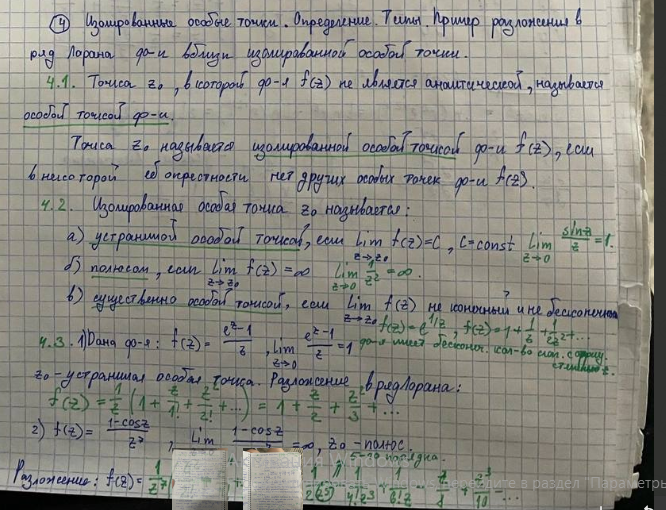 ④ Изолированные особые точки. Определение. Типы. Пример разложения в
ряд Лорана ф-и вблизи изолированной особой точки.
4.1. Точка z₀, в которой ф-я f(z) не является аналитической, называется
особой точкой ф-и.
Точка z₀ называется изолированной особой точкой ф-и f(z), если
в некоторой её окрестности нет других особых точек ф-и f(z).
4.2. Изолированная особая точка z₀ называется:
а) устранимой особой точкой, если lim z→z₀ f(z)=C, C=const lim z→0 sinz/z = 1.
б) полюсом, если lim z→z₀ f(z) = ∞ lim z→0 1/z² = ∞.
в) существенно особой точкой, если lim z→z₀ f(z) не конечный и не бесконечный
f(z)=e^(1/z), f(z)=1+1/z+1/z²+...
4.3. 1) Дана ф-я: f(z) = (e^z-1)/z, lim z→0 (e^z-1)/z = 1 ф-я имеет бесконеч. кол-во
z₀ - устранимая особая точка. Разложение в ряд Лорана:
f(z) = 1/z (1+z/1!+z²/2!+...) = 1+z/2+z²/3+...
2) f(z) = (1-cosz)/z⁷, lim (1-cosz) = ∞, z₀ - полюс.
5-го порядка.
Разложение: f(z) = 1/z⁷
перейдите в раздел "Параметры